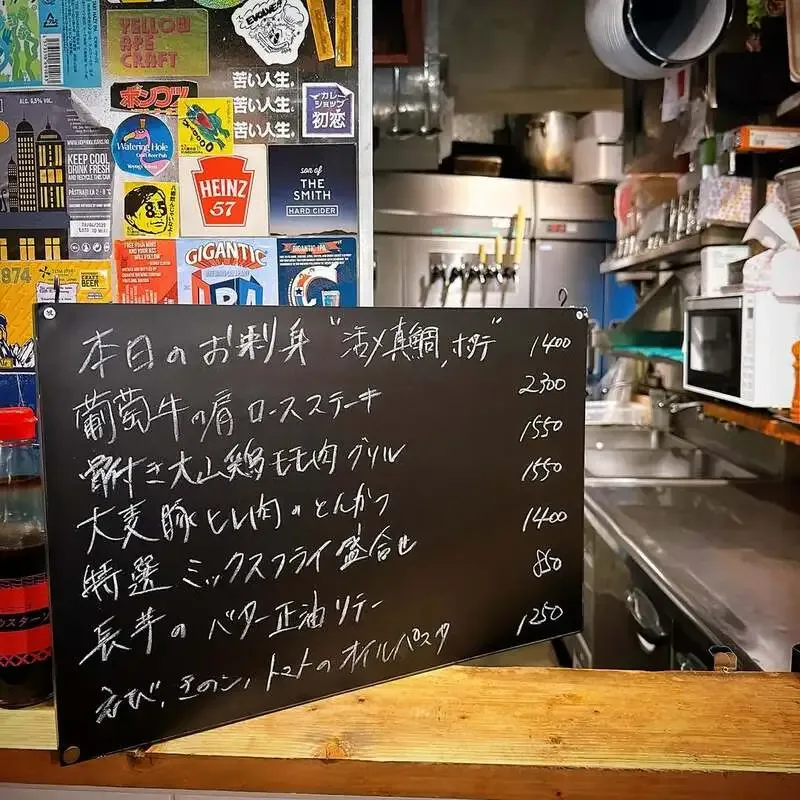 YELLOW
APE
CRAFT
EVONE!
ポンコツ
苦い人生。
苦い人生。
苦い人生。
カレー
ショップ
初恋
ALC. 6,5% VOL.
KEEP COOL
DRINK FRESH
AND RECYCLE THIS CAN
Watering Hole
Craft Beer Pub
HEINZ
57
son of
THE
SMITH
HARD CIDER
8.5
GIGANTIC
IPA
GIGANTIC IPA
1874
CRAFT
BEER
本日のお刺身 "活〆真鯛、ホタテ" 1400
葡萄牛の肩ロースステーキ 2300
骨付き大山鶏モモ肉グリル 1550
大麦豚ヒレ肉のとんかつ 1550
特選ミックスフライ盛合せ 1400
長芋のバター正油ソテー 850
えび、きのこ、トマトのオイルパスタ 1250